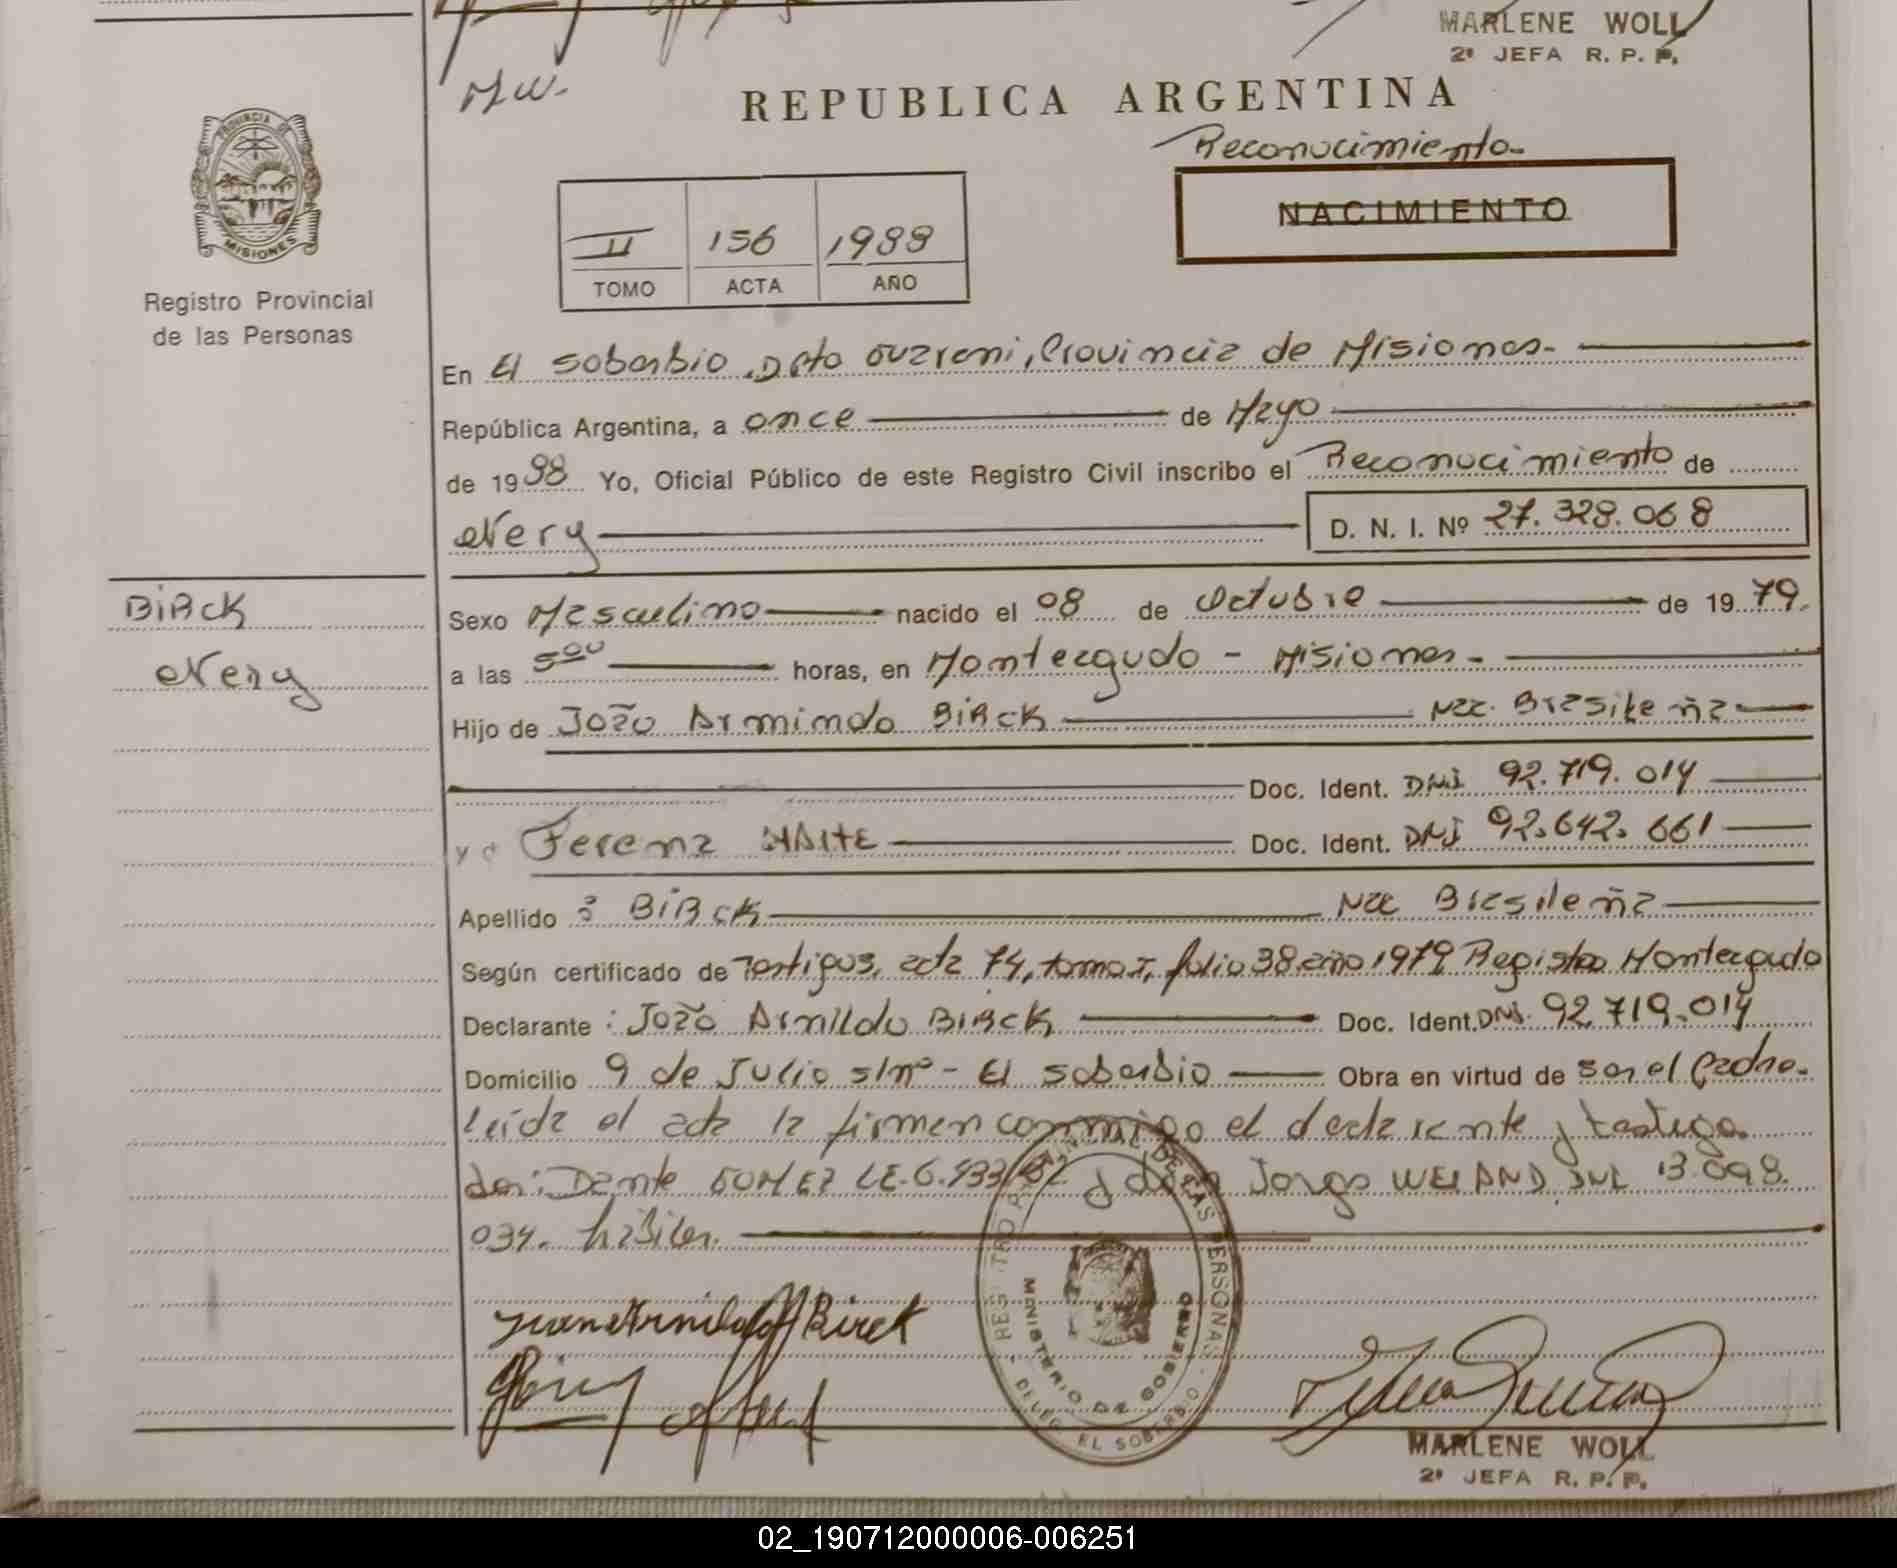 MARLENE WOLL
2ª JEFA R. P. P.
M W.
REPUBLICA ARGENTINA
Reconocimiento.
NACIMIENTO
PROVINCIA DE
MISIONES
Registro Provincial
de las Personas
II 156 1988
TOMO ACTA AÑO
En El Soberbio, Dpto Guarani, Provincia de Misiones.
República Argentina, a once de Mayo
de 1988 Yo, Oficial Público de este Registro Civil inscribo el Reconocimiento de
Nery D. N. I. Nº 27.328.068
BiRck
Nery
Sexo Masculino nacido el 08 de Octubre de 1979.
a las 5 00 horas, en Monteagudo - Misiones.
Hijo de João Armindo BiRck Nac. Brasileña
Doc. Ident. DNI 92.719.014
y d Doc. Ident. DNI 92.642.661
Apellido : BiRck Nac Brasileña
Según certificado de Testigos, acta 74, tomo I, folio 38 año 1979 Registro Monteagudo
Declarante : João Arnildo BiRck Doc. Ident. DNI. 92.719.014
Domicilio 9 de Julio s/nº - El Soberbio Obra en virtud de ser el Padre.
Leída el acta la firman conmigo el declarante y testigo
Dante GOMEZ LE. 6. y don Jorge 13.098.
034. hábiles.
Birck
REGISTRO PROVINCIAL DE LAS PERSONAS
MINISTERIO DE GOBIERNO
DELEG. EL SOBERBIO
MARLENE WOLL
2ª JEFA R. P. P.
02_190712000006-006251